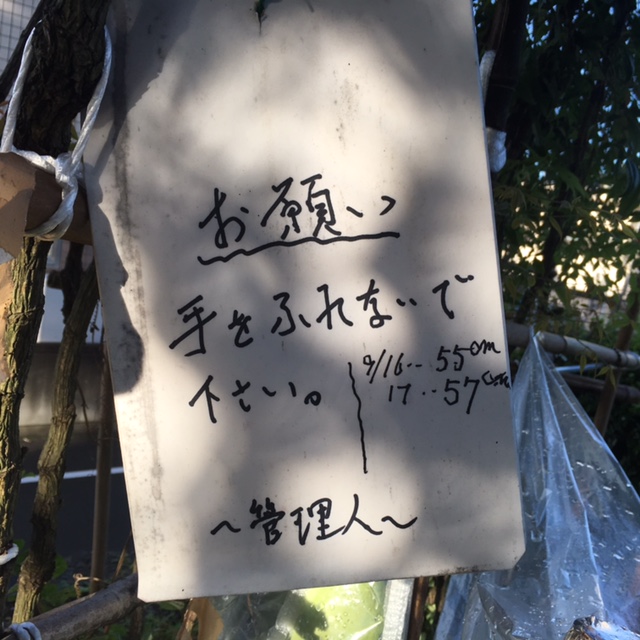 お願い
手をふれないで
下さい。
9/16‥55cm
17‥57cm
〜管理人〜